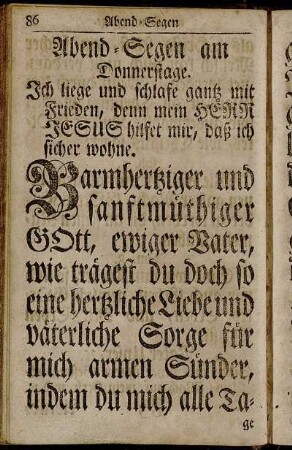 86 Abend-Segen
Abend-Segen am
Donnerstage.
Ich liege und schlafe gantz mit
Frieden, denn mein HERR
JESUS hilfet mir, daß ich
sicher wohne.
Barmhertziger und
sanftmüthiger
GOtt, ewiger Vater,
wie trägest du doch so
eine hertzliche Liebe und
väterliche Sorge für
mich armen Sünder,
indem du mich alle Ta-
ge